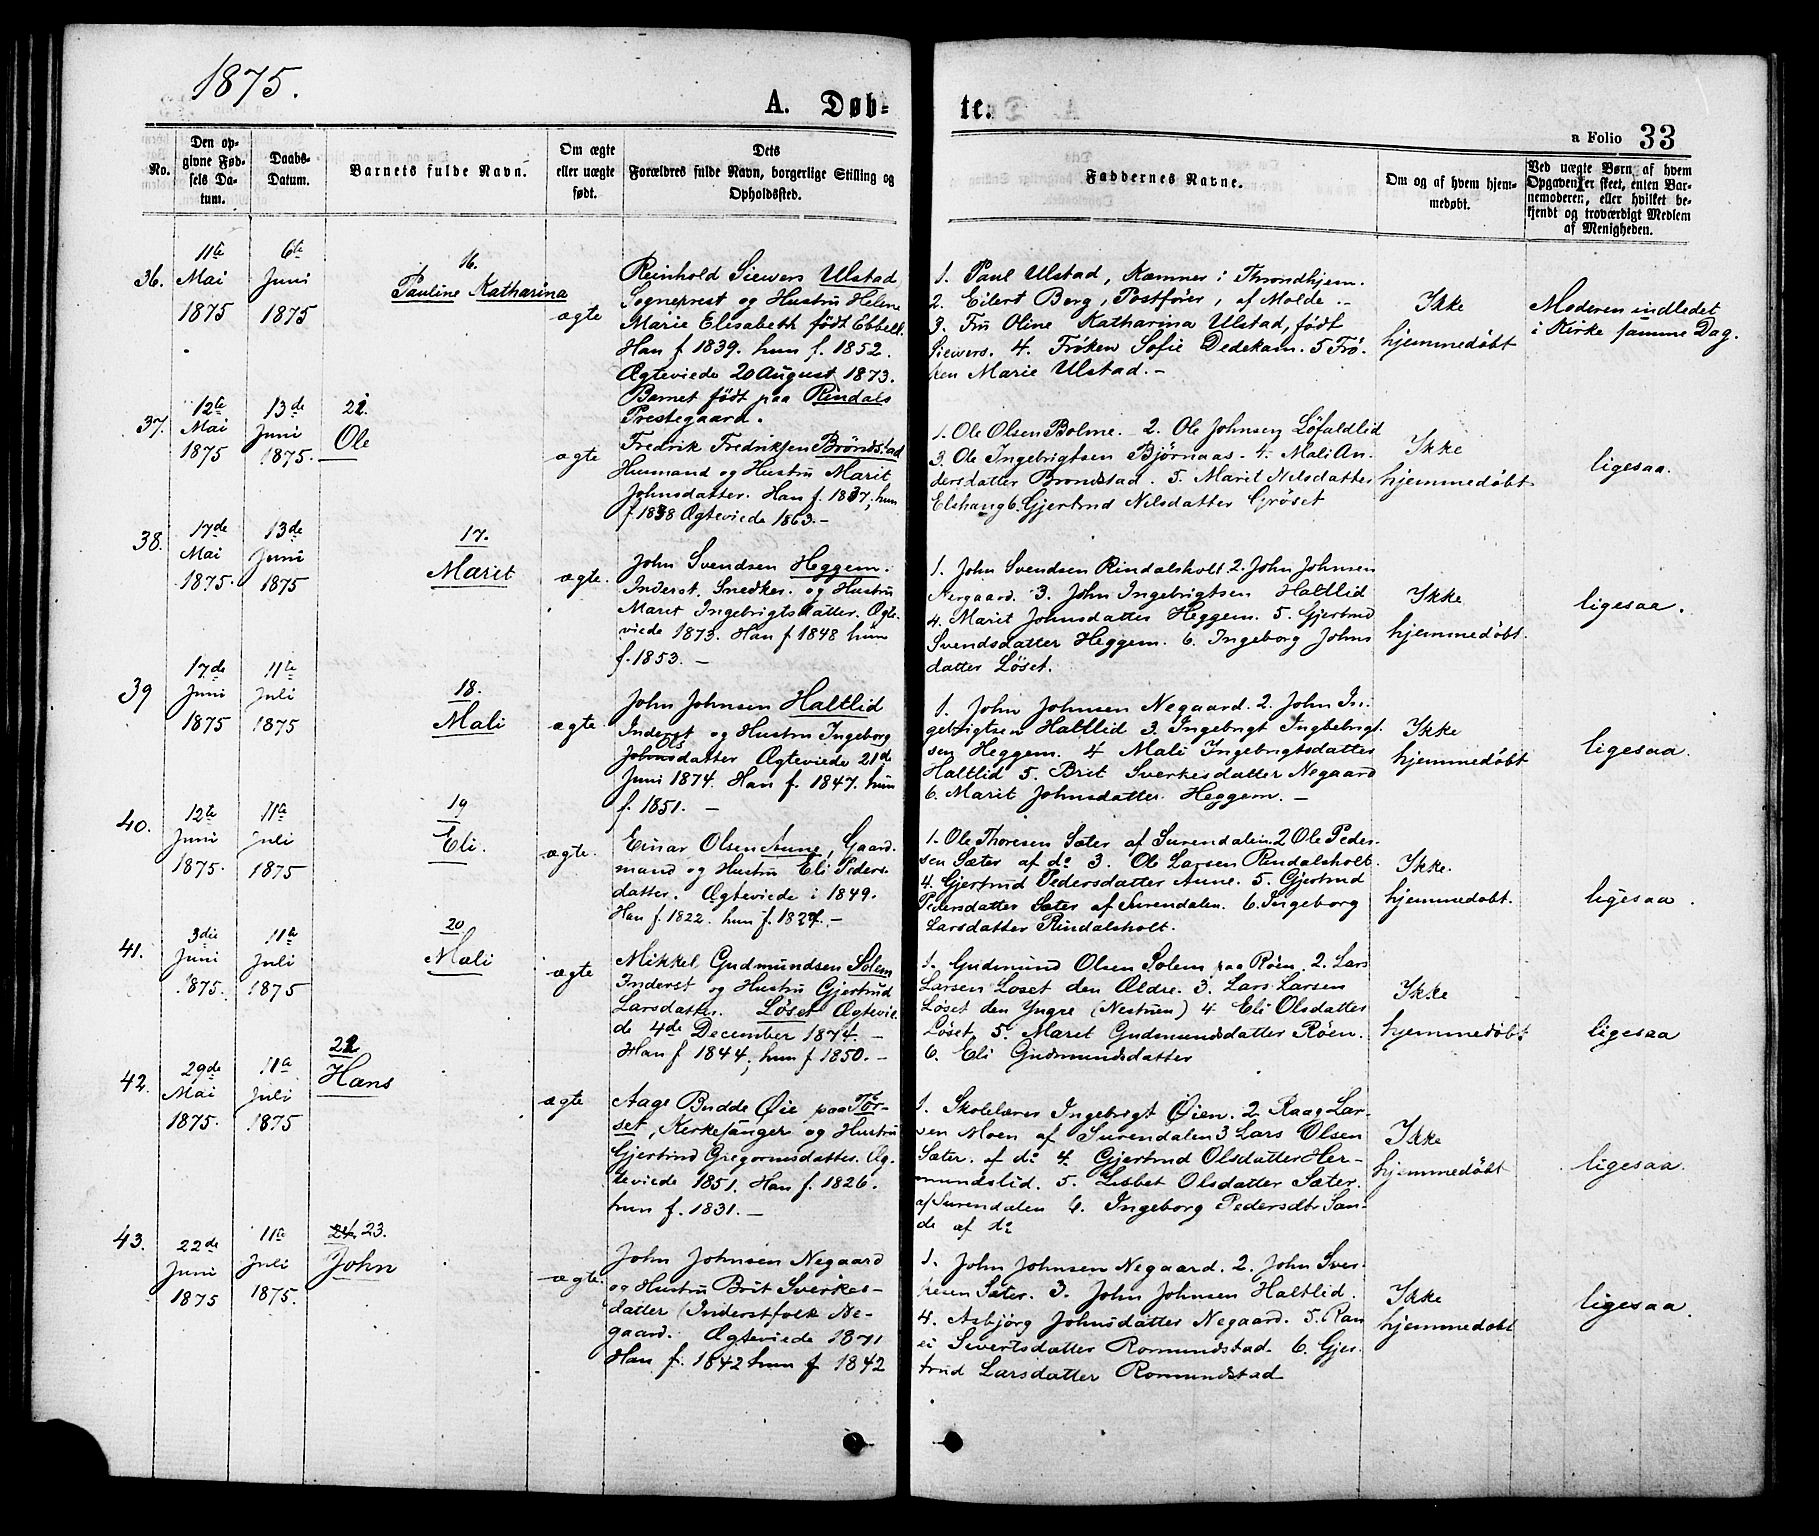 1875.
A. Døb-
te.
a Folio 33
No.
Den op-
givne Fød-
sels Da-
tum.
Daabs-
Datum.
Barnets fulde Navn.
Om ægte
eller uægte
født.
Dets
Forældres fulde Navn, borgerlige Stilling og
Opholdssted.
Faddernes Navne.
Om og af hvem hjem-
medøbt.
Ved uægte Børn, af hvem
Opgaven er skeet, enten Bar-
nemoderen, eller hvilket be-
kjendt og troværdigt Medlem
af Menigheden.
36.
11te
Mai
1875
6te
Juni
1875
16.
Pauline Katharina
ægte
Reinhold Siewers Ulstad
Sogneprest og Hustru Helene
Marie Elisabeth født Ebbell.
Han f 1839. hun f. 1852.
Ægteviede 20 August 1873.
Barnet født paa Rindals
Prestegaard.
1. Paul Ulstad, Kæmner i Throndhjem.
2. Eilert Borg, Postfører, af Molde. -
3. Fru Oline Katharina Ulstad, født
Siewers. 4. Frøken Sofie Dedekam. 5 Frø-
ken Marie Ulstad. -
Ikke
hjemmedøbt
Moderen indledet
i Kirke samme Dag.
37.
12te
Mai
1875
13de
Juni
1875.
21.
Ole
ægte
Fredrik Fredriksen Brøndstad
Husmand og Hustru Marit
Johnsdatter. Han f. 1837, hun
f. 1838 Ægteviede 1863. -
1. Ole Olsen Bolme. 2. Ole Johnsen Løfaldlid
3. Ole Ingebrigtsen Bjørnaas. 4. Mali An-
dersdatter Brøndstad. 5. Marit Nilsdatter
Elshaug 6. Gjertrud Nilsdatter Grøset
Ikke
hjemmedøbt
ligesaa.
38.
17de
Mai
1875.
13de
Juni
1875
17.
Marit
ægte.
John Svendsen Heggem.
Inderst, Snedker. og Hustru
Marit Ingebrigtsdatter. Ægte-
viede 1873. Han f 1848 hun
f. 1853. -
1. John Svendsen Rindalsholt 2. John Johnsen
Nergaard. 3. John Ingebrigtsen Haltlid
4. Marit Johnsdatter Heggem. 5. Gjertrud
Svendsdatter Heggem. 6. Ingeborg Johns
datter Løset.
Ikke
hjemmedøbt.
ligesaa.
39
17de
Juni
1875
11te
Juli
1875
18.
Mali
ægte.
John Johnsen Haltlid
Inderst og Hustru Ingeborg
Ols
Johnsdatter Ægteviede 21de
Juni 1874. Han f. 1847. hun
f. 1851. -
1. John Johnsen Negaard. 2. John In-
gebrigtsen Haltlid 3. Ingebrigt Ingbebrigt-
sen Heggem. 4 Mali Ingebrigtsdatter
Haltlid 5. Brit Sverkesdatter Negaard
6. Marit Johnsdatter. Heggem. -
Ikke
hjemmedøbt
ligesaa.
40.
12te
Juni
1875.
11te
Juli
1875
19
Eli.
ægte.
Einar Olsen Aune, Gaard-
mand og Hustru Eli Peders-
datter. Ægteviede i 1849.
Han f. 1822. hun f.
1. Ole Thoresen Sæter af Surendalen. 2 Ole Peder-
sen Sæter af do 3. Ole Larsen Rindalsholt.
4. Gjertrud Pedersdatter Aune. 5. Gjertrud
Pedersdatter Sæter af Surendalen. 6. Ingeborg
Larsdatter Rindalsholt.
Ikke.
hjemmedøbt.
ligesaa.
41.
3die
Juni
1875.
11te
Juli
1875
20
Mali
ægte
Mikkel Gudmundsen Solem
Inderst og Hustru Gjertrud
Larsdatter. Løset Ægtevie-
de 4de December 1874. -
Han f 1844, hun f 1850. -
1. Gudmund Olsen Solem paa Røen. 2. Lars
Larsen Løset den Ældre. 3. Lars Larsen
Løset den Yngre (Nestuen) 4 Eli Olsdatter
Løset. 5. Marit Gudmundsdatter Røen.
6. Eli Gudmundsdatter
Ikke
hjemmedøbt.
ligesaa
42.
29de
Mai
1875.
11te
Juli
1875
22
Hans
ægte
Aage Budde Øie paa Tør-
set, Kirkesanger og Hustru
Gjertrud Gregoriusdatter. Æg-
teviede 1851. Han f. 1826.
hun f. 1831. -
1. Skolelærer Ingebrigt Øien. 2. Raag Lar-
sen Moen af Surendalen 3 Lars Olsen
Sæter. af do 4. Gjertrud Olsdatter Her-
mundslid. 5. Lisbet Olsdatter Sæter.
af Surendalen 6. Ingeborg Pedersdtr San-
de af do
Ikke
hjemmedøbt
ligesaa.
43.
22de
Juni
1875
11te
Juli
1875.
24. 23.
John
ægte.
John Johnsen Negaard
og Hustru Brit Sverkes-
datter Inderstfolk Ne-
gaard. Ægteviede 1871
Han f. 1842 hun f 1842
1. John Johnsen Negaard. 2. John Sver-
kesen Sæter. 3. John Johnsen Haltlid.
4. Asbjørg Johnsdatter Negaard. 5. Ran
ei Sivertsdatter Romundstad. 6. Gjer-
trud Larsdatter Romundstad
Ikke
hjemmedøbt
ligesaa.